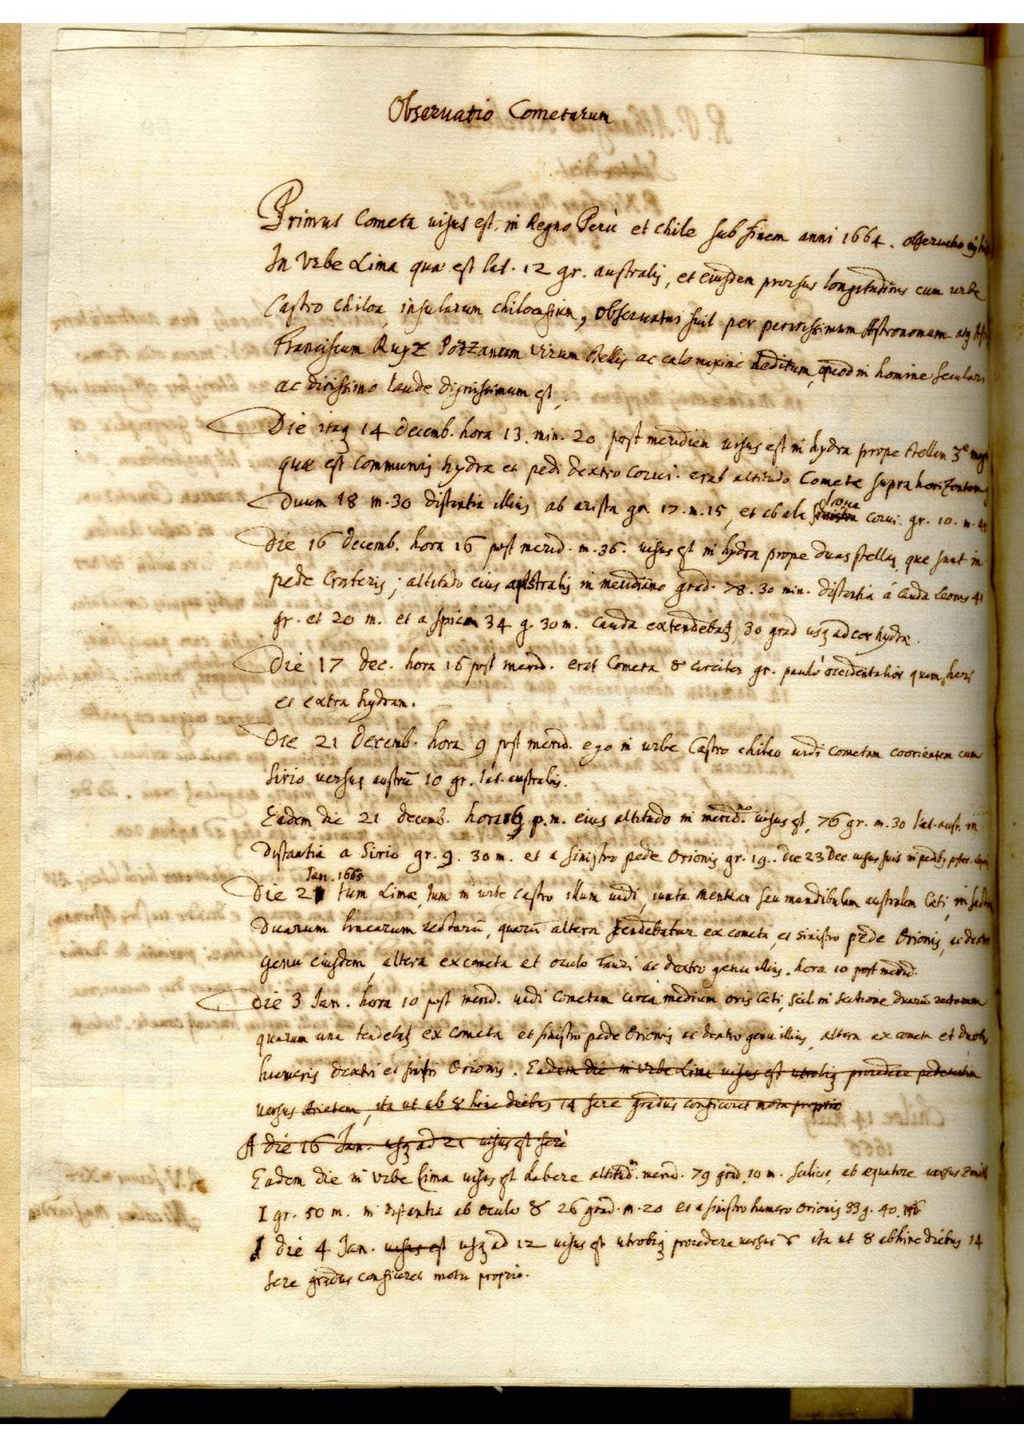 Observatio Cometarum
Primus Cometa uisus est, in Regno Perù et chile sub finem anni 1664. observatio
In Vrbe Lima quæ est lat. 12 gr. australis, et eiusdem prorsus longitudinis cum urbe
Castro chiloa, insularum chiloensium, observatus fuit per peritissimum Astronomum
Franciscum Ruyz Lozzanum virum stellis ac cælo maximè deditum, quod in homine seculari
ac ditissimo laude dignissimum est.
Die itaq 14 decemb. hora 13. min. 20 post meridien uisus est in hydra prope stellam 3æ mag
quæ est communis hydræ et pedi dextro Corui. erat altitudo Cometæ supra horizontem
Duum 18 m. 30 distantia illius ab arista gr. 17. m. 15, et ab ala corui gr. 10. m.
Die 16 decemb. hora 16 post merid. m. 36. uisus est in hydra prope duas stellas que sunt in
pede Crateris; altitudo eius australis in meridiano grad. 78. 30 min. distantia á Cauda Leonis 41
gr. et 20 m. et a spica 34 g. 30 m. Cauda extendebatʒ 30 grad usq ad cor hydræ.
Die 17 dec. hora 16 post merid. erat Cometa 8 circiter gr. paulò occidentalior quam heri
et extra hydram.
Die 21 decemb. hora 9 post merid. ego in urbe Castro chiloa uidi cometam coorientem cum
Sirio uersus austrũ 10 gr. lat. australis.
Eadem die 21 decemb. hora p.m. eius altitudo in merid.no uisus est, 76 gr. m. 30 lat. aust. in
Distantia a Sirio gr. 9. 30 m. et a sinistro pede Orionis gr. 19.. die 23 Dec uisus fuit in pedibʒ
Jan. 1665
Die 2 tum Limæ tum in urbe Castro illum uidi, iuxta mentum seu mandibulam australem Ceti, in
Duarum linearum rectarũ, quarũ altera tendebatur ex cometa, et sinistro pede Orionis, ac dextro
genu eiusdem, altera ex cometa et oculo Tauri ac dextro genu illius. hora 10 post merid.
Die 3 Jan. hora 10 post merid. uidi Cometam circa medium oris Ceti, scil. in sectione duarũ rectarum
quarum una tendebatʒ ex cometa et sinistro pede Orionis ac dextro genu illius, altera ex cometa et duobʒ
humeris dextri et sinistri Orionis. Eadem die in Vrbe Lima uisus est utrobiq procedere pedetentim
uersus Arietem, ita ut ab 8 hinc diebus 14 fere gradus conficeret motu proprio
A die 16 Jan. usq ad 21 uisus est ferè
Eadem die in Vrbe Lima uisus est habere altitud. merid. 79 grad. 10 m. scilicet, ab æquatore uersus
I gr. 50 m. in distantia ab oculo ♉ 26 grad. m. 20 et a sinistro humero Orionis 33 g. 40.
A die 4 Jan. uisus est usq ad 12 uisus est utrobiq procedere uersus ♈ ita ut 8 ab hinc diebus 14
fere gradus conficeret motu proprio.